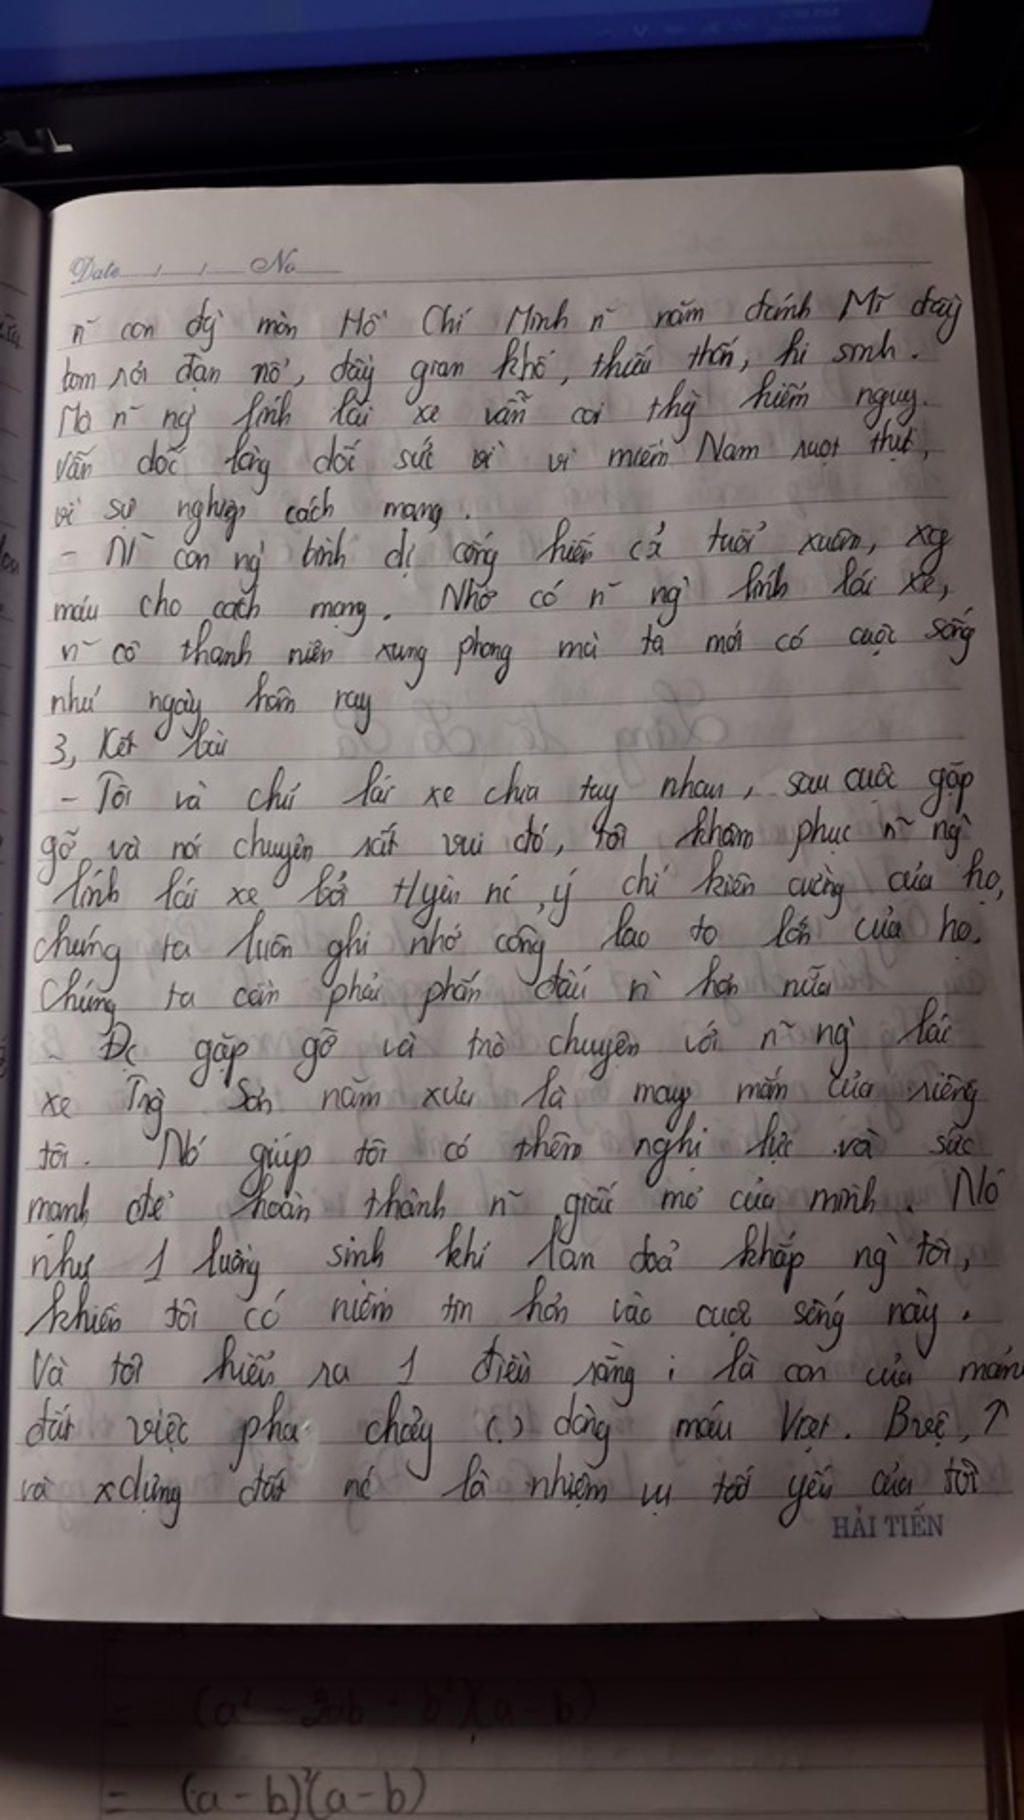 Date / / No
n~ con đg` mòn Hồ Chí Minh n~ năm đánh Mĩ đầy
bom rơi đạn nổ, đầy gian khổ, thiếu thốn, hi sinh.
Mà n~ ng` lính lái xe vẫn coi thg` hiểm nguy.
vẫn dốc lòng dốc sức vì vì miền Nam ruột thịt,
vì sự nghiệp cách mạng.
- N~ con ng` bình dị cống hiến cả tuổi xuân, xg
máu cho cách mạng. Nhờ có n~ ng` lính lái xe,
n~ cô thanh niên xung phong mà ta mới có cuộc sống
như ngày hôm nay
3, Kết bài
- Tôi và chú lái xe chia tay nhau, sau cuộc gặp
gỡ và nói chuyện rất vui đó, tôi khâm phục n~ ng`
lính lái xe bởi ý chí kiên cường của họ,
chúng ta luôn ghi nhớ công lao to lớn của họ.
Chúng ta cần phải phấn đấu n` hơn nữa
- Đc gặp gỡ và trò chuyện với n~ ng` lái
xe Trg` Sơn năm xưa là may mắn của riêng
tôi. Nó giúp tôi có thêm nghị lực và sức
mạnh để hoàn thành n~ giấc mơ của mình. Nó
như 1 luồng sinh khí lan toả khắp ng` tôi,
khiến tôi có niềm tin hơn vào cuộc sống này.
Và tôi hiểu ra 1 điều rằng: là con của mảnh
đất việc chảy (.) dòng máu Việt. Bvệ, ↑
và xdựng đất nc là nhiệm vụ tối yếu của tôi
HẢI TIẾN
= (a² - 2ab + b²)(a - b)
= (a - b)²(a - b)